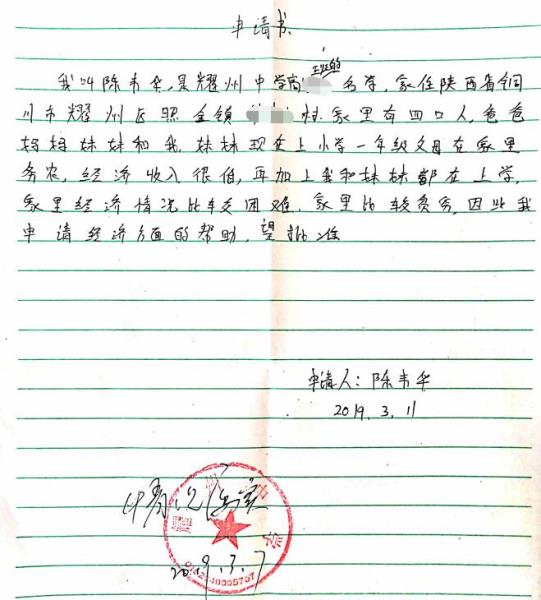 申请书
我叫陈韦华,是耀州中学高 班的 名学,家住陕西省铜
川市耀州区照金镇 村,家里有四口人,爸爸
妈妈妹妹和我,妹妹现在上小学一年级父母在家里
务农,经济收入很低,再加上我和妹妹都在上学,
家里经济情况比较困难,家里比较贫穷,因此我
申请经济方面的帮助,望批准
申请人:陈韦华
2019.3.11
情况属实
2019.3.7